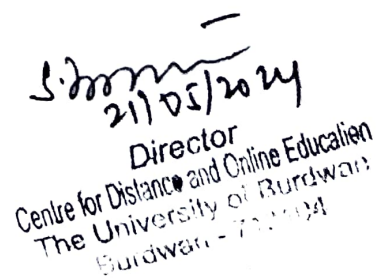 21/05/2024
Director
Centre for Distance and Online Education
The University of Burdwan
Burdwan -